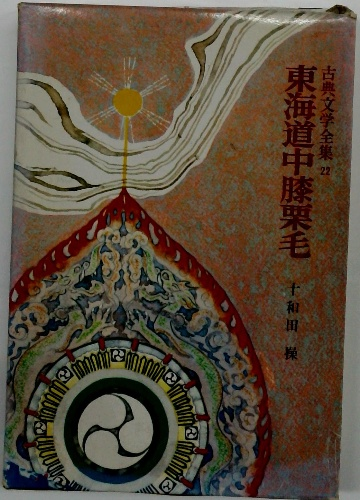 古典文学全集 22
東海道中膝栗毛
十和田 操